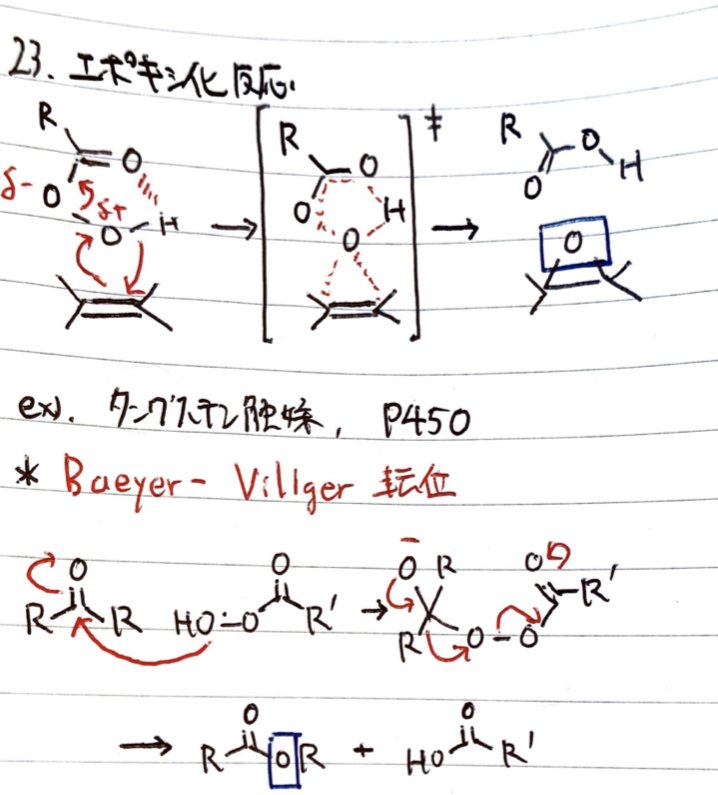 23. エポキシ化反応.
R O δ- O δ+ O H → [ R O O H O ]‡ → R O H O O
ex). タングステン触媒, P450
* Baeyer- Villger 転位
O R R HO:-O O R' → O- R R O-O O R'
→ R O O R + HO O R'